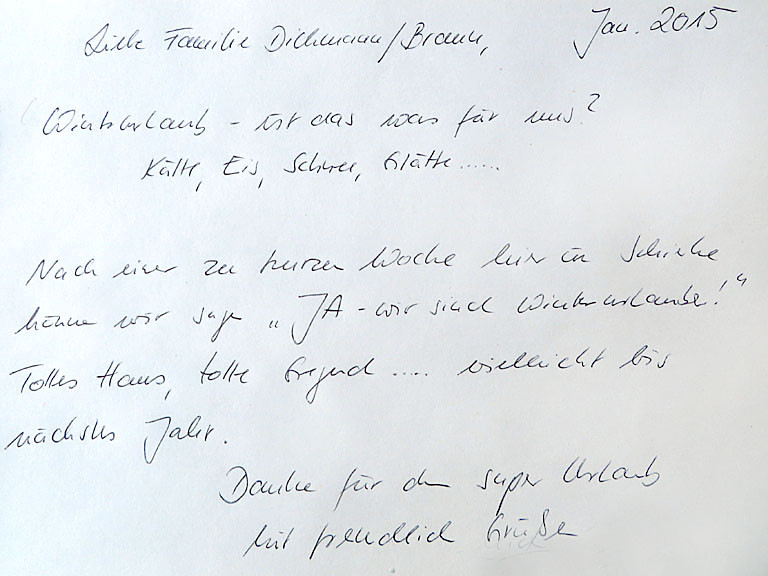 Liebe Familie Dickmann/Braun, Jan. 2015
Winterurlaub - ist das was für uns?
Kälte, Eis, Schnee, Glätte......
Nach einer zu kurzen Woche hier in Schierke
können wir sagen „JA - wir sind Winterurlauber!"
Tolles Haus, tolle Gegend ..... vielleicht bis
nächstes Jahr.
Danke für den super Urlaub
Mit freundlich Grüßen